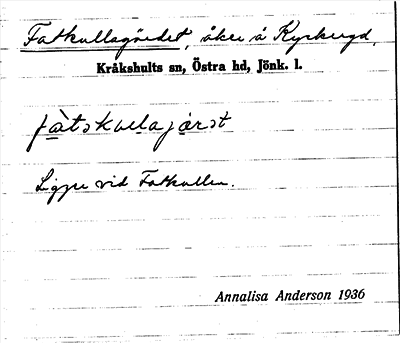 Fatkullagärdet, åker å Kyrkeryd,
Kråkshults sn, Östra hd, Jönk. l.
Ligger vid Fatkullen.
Annalisa Anderson 1936